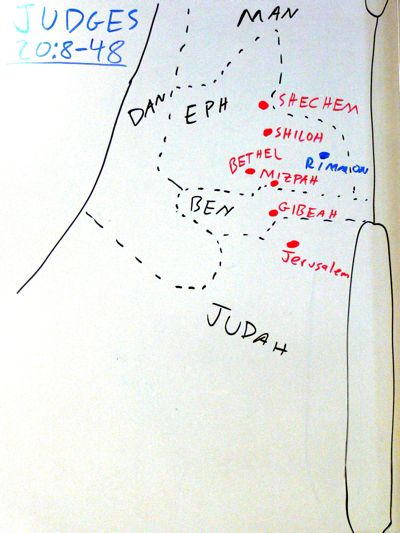 JUDGES
20:8-48
MAN
DAN
EPH
SHECHEM
SHILOH
BETHEL
RIMMON
MIZPAH
BEN
GIBEAH
Jerusalem
JUDAH